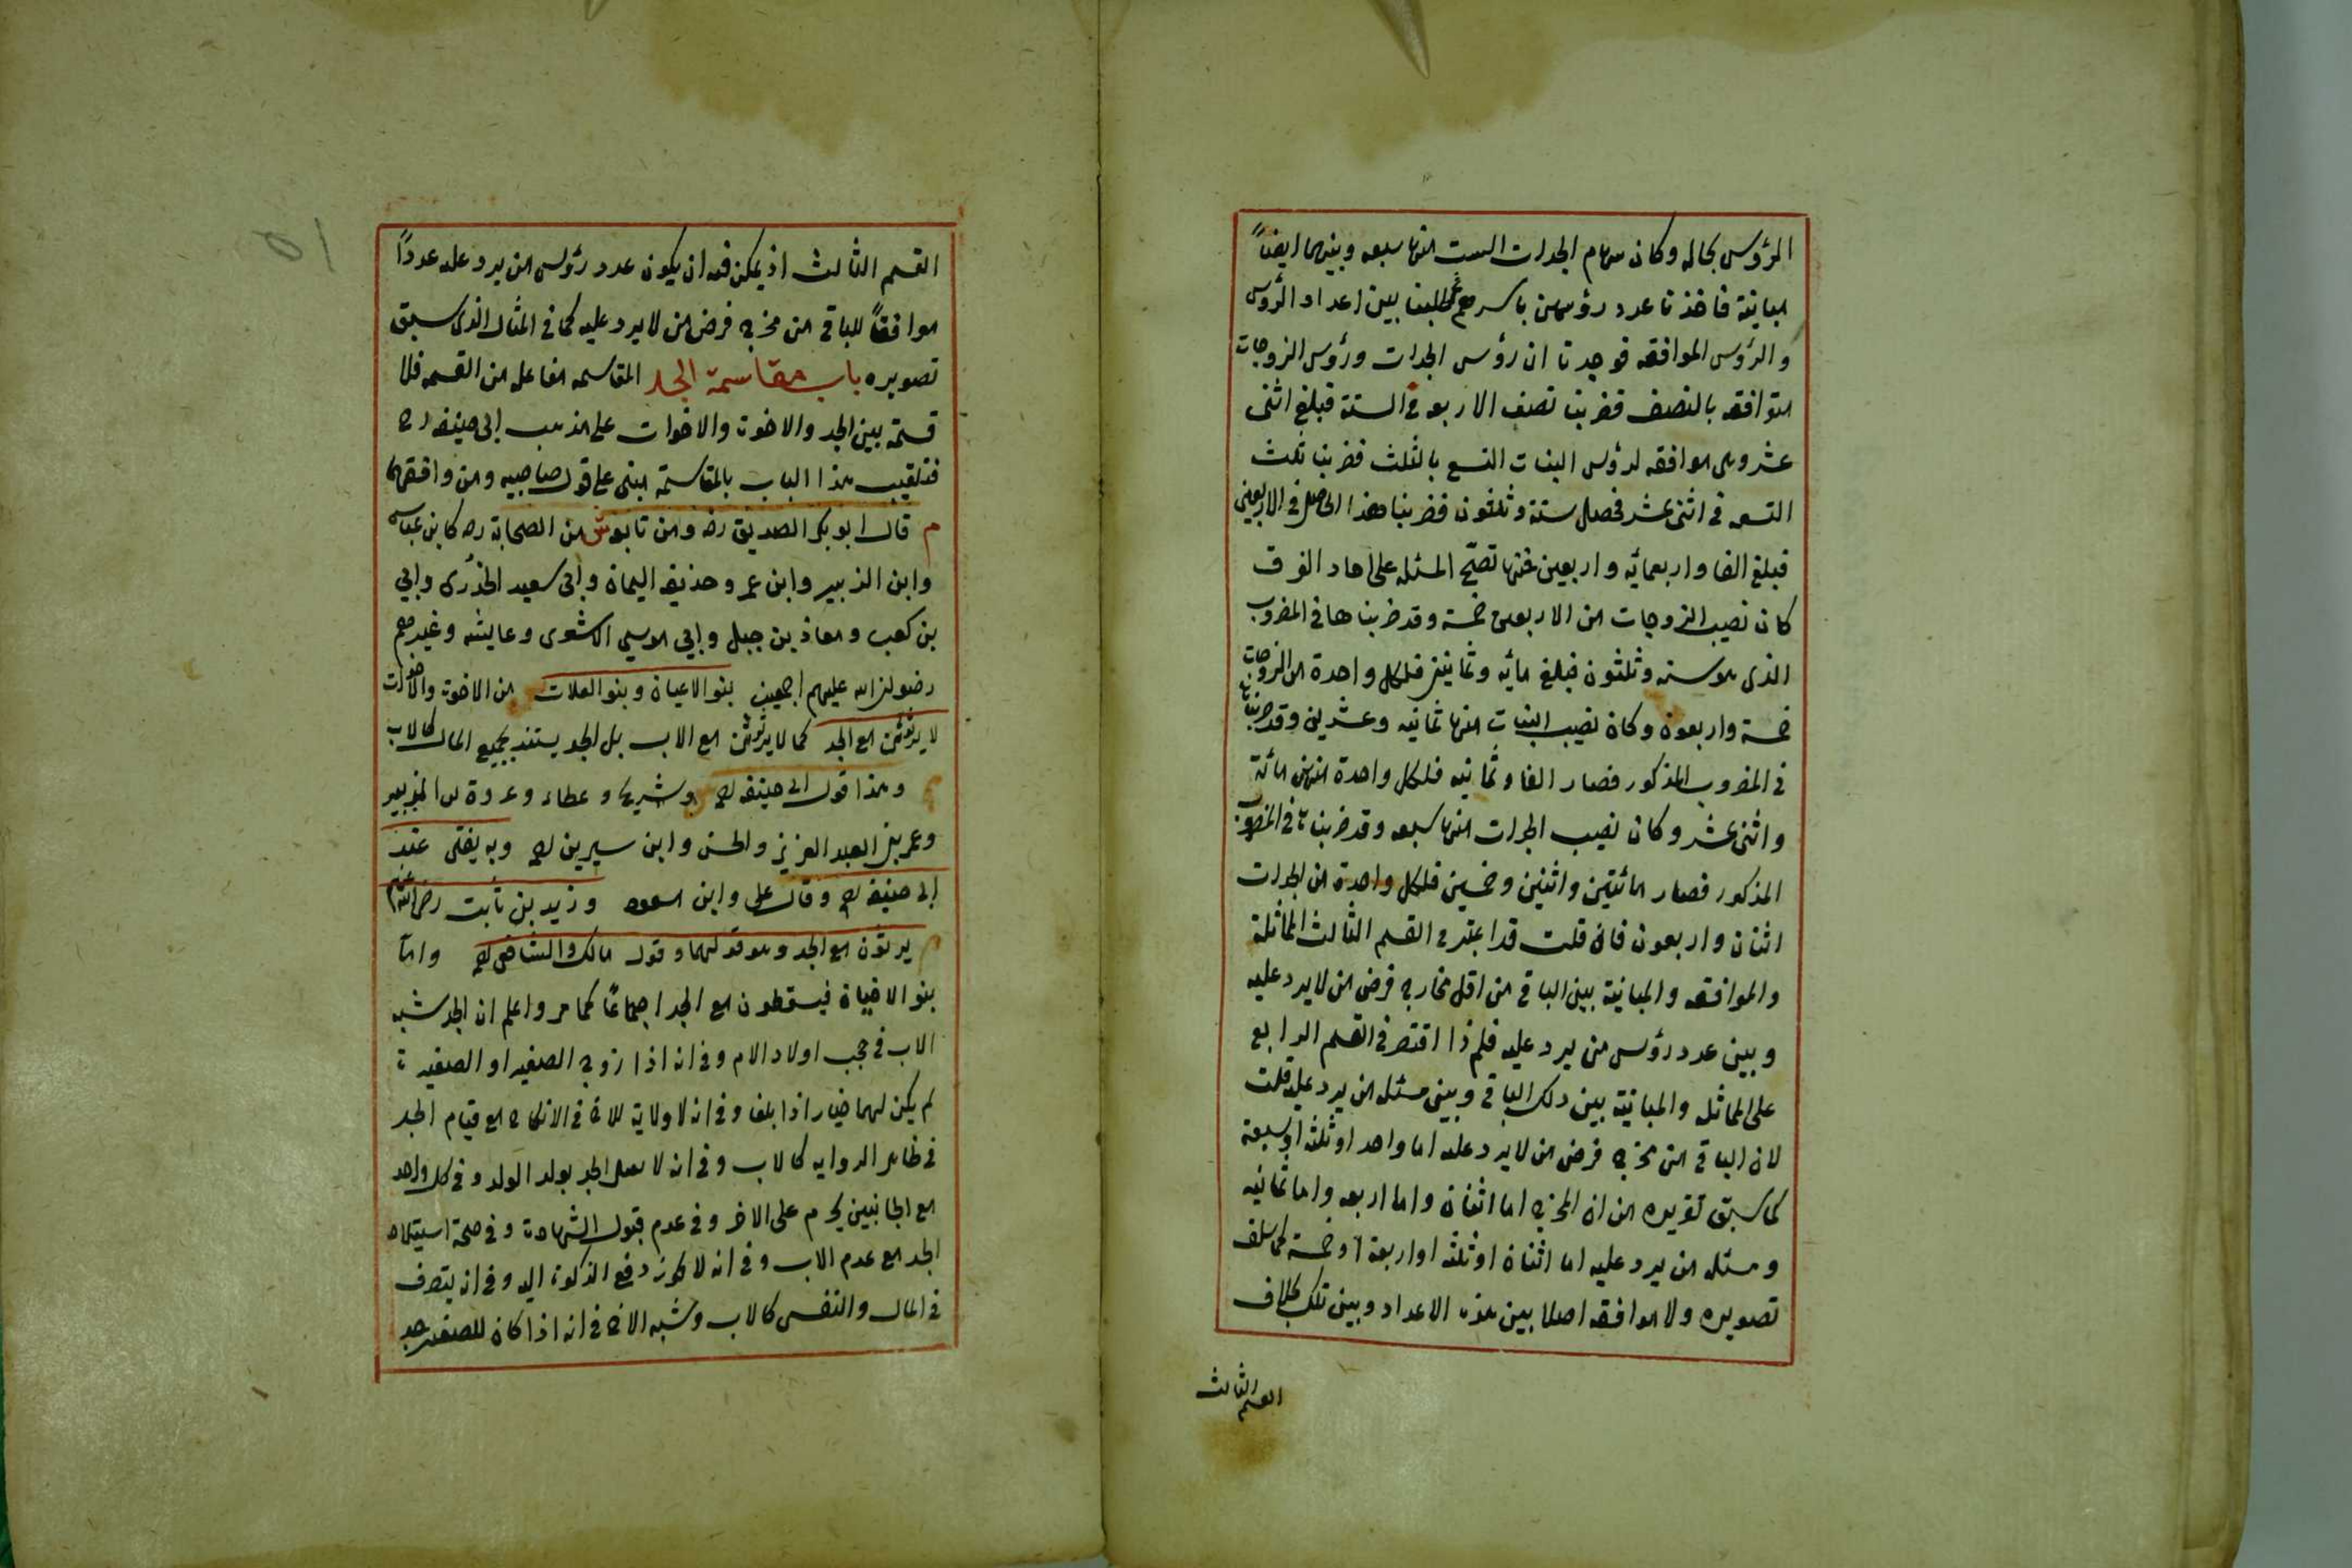 الرؤس بحاله وكان سهام الجدات الست منها سبعه وبينهما ايضاً
مباينة فاخذنا عدد رؤسهن باسرهم ثم طلبنا بين اعداد الرؤس
والرؤس الموافقه فوجدنا ان رؤس الجدات ورؤس الزوجات
متوافقه بالنصف فضربنا نصف الاربعه في الستة فبلغ اثنى
عشر وهى موافقه لرؤس البنات التسع بالثلث فضربنا ثلث
التسعه في اثنى عشر فحصل ستة وثلثون فضربنا هذا الحاصل في الاربعين
فبلغ الفا واربعمائه واربعين فمنها تصحّ المسئله على احاد الفرق
كان نصيب الزوجات من الاربعين خمسة وقد ضربناها في المضروب
الذى هو سته وثلثون فبلغ مائه وثمانين فلكل واحدة من الزوجات
خمسة واربعون وكان نصيب البنات منها ثمانيه وعشرين وقد ضربناها
في المضروب المذكور فصار الفا وثمانيه فلكل واحدة منهن مائة
واثنى عشر وكان نصيب الجدات منها سبعه وقد ضربناها في المضروب
المذكور فصار مائتين واثنين وخمسين فلكل واحدة من الجدات
اثنان واربعون فان قلت قد اعتبر في القسم الثالث المماثلة
والموافقه والمباينة بين الباقي من اقل مخارج فرض من لا يرد عليه
وبين عدد رؤس من يرد عليه فلم ذا اقتصر في القسم الرابع
على المماثله والمباينة بين ذلك الباقي وبين مسئله من يرد عليه قلت
لان الباقي من مخرج فرض من لا يرد عليه اما واحد او ثلثة او سبعة
كما سبق تقريره من ان المخرج اما اثنان واما اربعه واما ثمانيه
ومسئله من يرد عليه اما اثنان او ثلثه او اربعة او خمسة كما سلف
تصويره ولا موافقه اصلا بين هذه الاعداد وبين تلك بخلاف
القسم الثالث
القسم الثالث اذ يمكن فيه ان يكون عدد رؤس من يرد عليه عدداً
موافقاً للباقي من مخرج فرض من لا يرد عليه كما في المثال الذى سبق
تصويره باب مقاسمة الجد المقاسمه مفاعله من القسمه فلا
قسمة بين الجد والاخوة والاخوات على مذهب ابى حنيفه رح
فتلقيب هذا الباب بالمقاسمة مبنى على قول صاحبيه ومن وافقهما
م قال ابو بكر الصديق رضه ومن تابعه ش من الصحابة رضه كابن عباس
وابن الزبير وابن عمر وحذيفه اليمان وابى سعيد الخدرى وابي
بن كعب ومعاذ بن جبل وابي موسي الاشعرى وعايشه وغيرهم
رضوان الله عليهم اجمعين بنو الاعيان وبنو العلات من الاخوة والاخوات
لا يرثون مع الجد كما لا يرثون مع الاب بل الجد يستبد بجميع المال كالاب
م وهذا قول ابى حنيفه رح وشريح وعطاء وعروة بن الزبير
وعمر بن العبد العزيز والحسن وابن سيرين رح وبه يفتى عند
ابى حنيفه رح وقال على وابن مسعود وزيد بن ثابت رضى الله عنهم
م يرثون مع الجد وهو قولهما وقول مالك والشافعى رح وامّا
بنو الاخياف فيسقطون مع الجد اجماعًا كما مر واعلم ان الجد شبه
الاب في حجب اولاد الام وفي انه اذا زوج الصغير او الصغيرة
لم يكن لهما خيار اذا بلغا وفي انه لا ولاية للاخ في الانكاح مع قيام الجد
في ظاهر الروايه كالاب وفي انه لا يقتل الجد بولد الولد وفي كل واحد
مع الجانبين يحرم على الاخر وفي عدم قبول الشهادة وفي صحة استيلاد
الجد مع عدم الاب وفي انه لا يجوز دفع الزكوة اليه وفي انه يتصرف
في المال والنفس كالاب وشبه الاخ في انه اذا كان للصغير جد